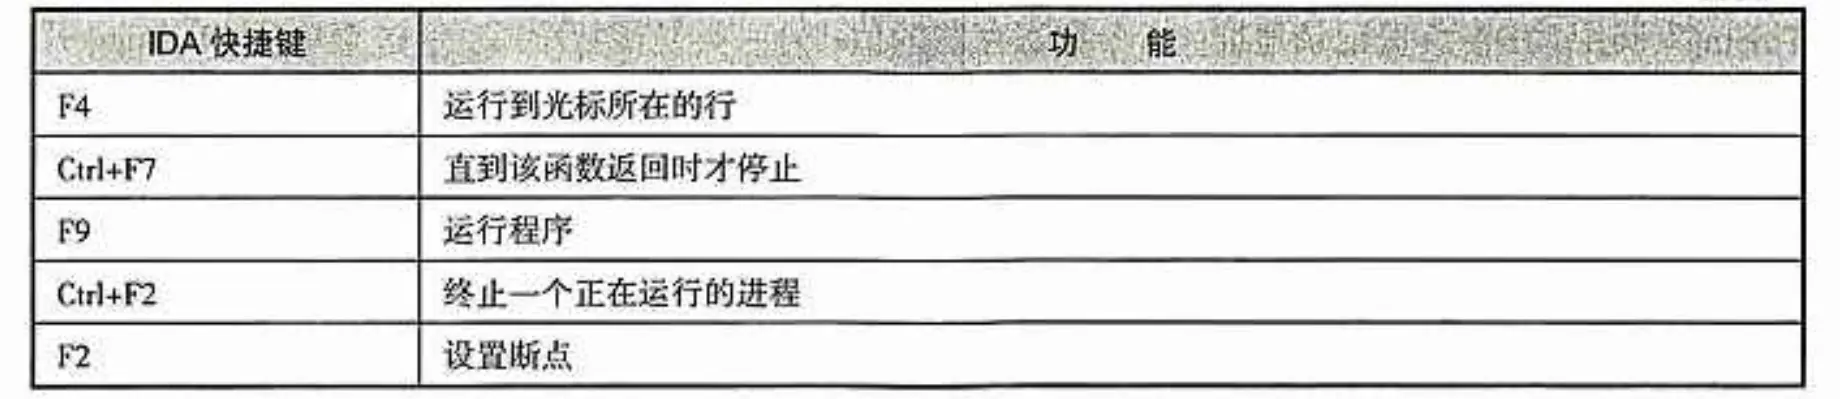 IDA 快捷键 功 能
F4 运行到光标所在的行
Ctrl+F7 直到该函数返回时才停止
F9 运行程序
Ctrl+F2 终止一个正在运行的进程
F2 设置断点